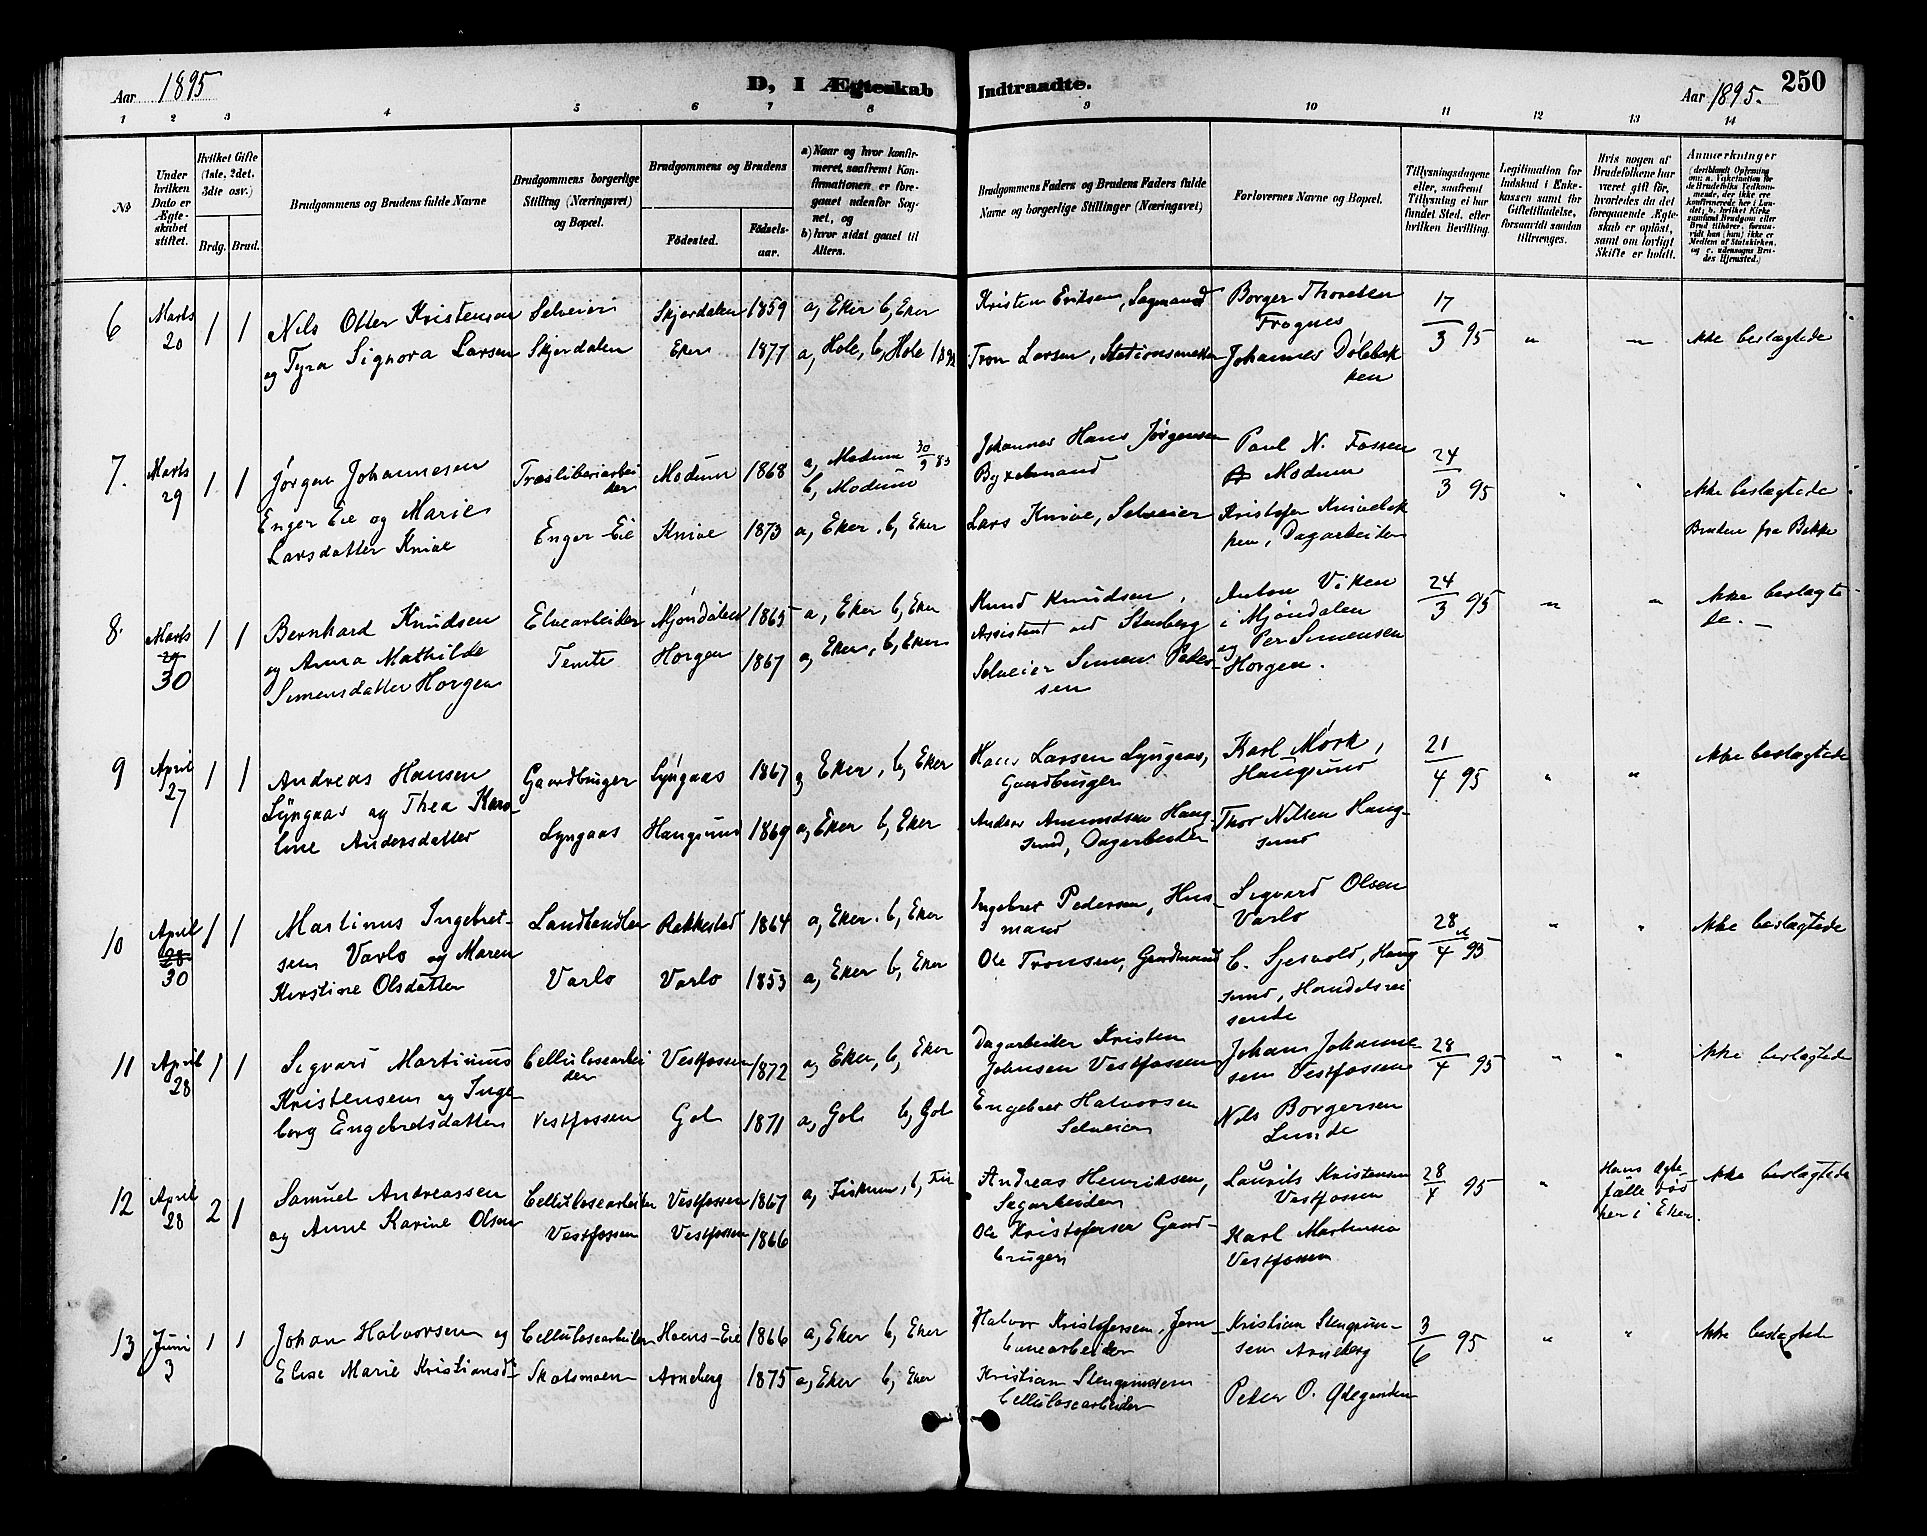 Aar 1895
D, I Ægteskab
Indtraadte.
Aar 1895.
250
1 2 3 4 5 6 7 8 9 10 11 12 13 14
No
Under
hvilken
Dato er
Ægte-
skabet
stiftet.
Hvilket Gifte
(1ste, 2det,
3die osv.)
Brdg. Brud.
Brudgommens og Brudens fulde Navne
Brudgommens borgerlige
Stilling (Næringsvei)
og Bopæl.
Brudgommens og Brudens
Fødested.
Fødsels-
aar.
a) Naar og hvor konfir-
meret, saafremt Kon-
firmationen er fore-
gaaet udenfor Sog-
net, og
b) hvor sidst gaaet til
Alters.
Brudgommens Faders og Brudens Faders fulde
Navne og borgerlige Stillinger (Næringsvei)
Forlovernes Navne og Bopæl.
Tillysningsdagene
eller, saafremt
Tillysning ei har
fundet Sted, efter
hvilken Bevilling.
Legitimation for
Indskud i Enke-
kassen samt for
Giftetilladelse,
forsaavidt saadan
tiltrænges.
Hvis nogen af
Brudefolkene har
været gift før,
hvorledes da det
foregaaende Ægte-
skab er opløst,
samt om lovligt
Skifte er holdt.
Anmærkninger
(deriblandt Oplysning
om: a. Vakcination for
de Brudefolks Vedkom-
mende, der ikke ere
konfirmerede her i Lan-
det, b. hvilket Kirke-
samfund Brudgom eller
Brud tilhører, forsaa-
vidt han (hun) ikke er
Medlem af Statskirken,
og c. udensogns Bru-
des Hjemsted.)
6 Marts 20 1 1
Nils Otter Kristensen
og Tyra Signora Larsen
Selveier
Skjerdalen
Skjerdalen 1859 a, Eker b, Eker
Eker 1877 a, Hole, b, Hole
Kristen Eriksen, Sagmand
Tron Larsen, Stationsmester
Borger Thoresen
Frognes
Johannes Dølebak
ken
17/3 95 " — ikke beslægtede
7. Marts 29 1 1
Jørgen Johannesen
Enger Eie og Marie
Larsdatter Knive
Træsliberiarbei
der
Enger Eie
Modum 1868 a, Modum 30/9 83
b, Modum
Knive 1873 a, Eker. b, Eker
Johannes Hans Jørgensen
Bygselmand
Lars Knive, Selveier
Paul N. Fossen
Modum
Kristofer Knivebak
ken, Dagarbeider
24/3 95 " " ikke beslægtede
Bruden fra Bakke
8. Marts 30 1 1
Bernhard Knudsen
og Anna Mathilde
Simensdatter Horgen
Elvearbeider
Temte
Mjøndalen 1865 a, Eker b, Eker
Horgen 1867 a, Eker, b, Eker
Knud Knudsen,
Assistent ved Stenberg
Selveier Simen Peder-
sen
Anton Viken
i Mjøndalen
og Per Simensen
Horgen.
24/3 95 " " ikke beslægte
de. —
9 April 27 1 1
Andreas Hansen
Lyngaas og Thea Karo-
line Andersdatter
Gaardbruger
Lyngaas
Lyngaas 1867 a, Eker, b, Eker
Haugsund 1869 a, Eker b, Eker
Hans Larsen Lyngaas,
Gaardbruger
Anders Amundsen Haug-
sund, Dagarbeider
Karl Mørk,
Haugsund
Thor Nilsen Haug-
sund
21/4 95 " " ikke beslægtede
10 April 30 1 1
Martinus Ingebret-
sen Varlo og Maren
Kirstine Olsdatter
Landhandler
Varlo
Rakkestad 1864 a, Eker. b, Eker
Varlo 1853 a, Eker b, Eker
Ingebret Pedersen, Hus-
mand
Ole Tronsen, Gaardmand
Sigvard Olsen
Varlo
C. Sjesvold, Haug
sund, Handelsrei
sende
28/4 95 " " ikke beslægtede
11 April 28 1 1
Sigvard Martinus
Kristensen og Inge-
borg Engebretsdatter
Cellulosearbei
der
Vestfossen
Vestfossen 1872 a, Eker, b, Eker
Gol 1871 a, Gol b, Gol
Dagarbeider Kristen
Johnsen Vestfossen
Engebret Halvorsen
Selveier
Johan Johanne-
sen Vestfossen
Nils Borgersen
Lunde
28/4 95 " " ikke beslægtede
12 April 28 2 1
Samuel Andreassen
og Anne Karine Olsen
Cellulosearbeider
Vestfossen
Vestfossen 1867 a, Fiskum, b, Fis
Vestfossen 1866
Andreas Henriksen,
Sagarbeider
Ole Kristofersen Gaard-
bruger
Laurits Kristensen
Vestfossen
Karl Martinsen
Vestfossen
28/4 95 " Hans Ægte
fælle død
her i Eker. ikke beslægtede
13 Juni 3 1 1
Johan Halvorsen og
Elise Marie Kristiansd
Cellulosearbeider
Skotsmoen
Hoens-Eie 1866 a, Eker b, Eker
Arneberg 1875 a, Eker b, Eker
Halvor Kristofersen, Jern-
banearbeider
Kristian Stengrimsen
Cellulosearbeider
Kristian Stengrim-
sen Arneberg
Peder O. Ødegaarden
3/6 95 " " ikke beslægtede